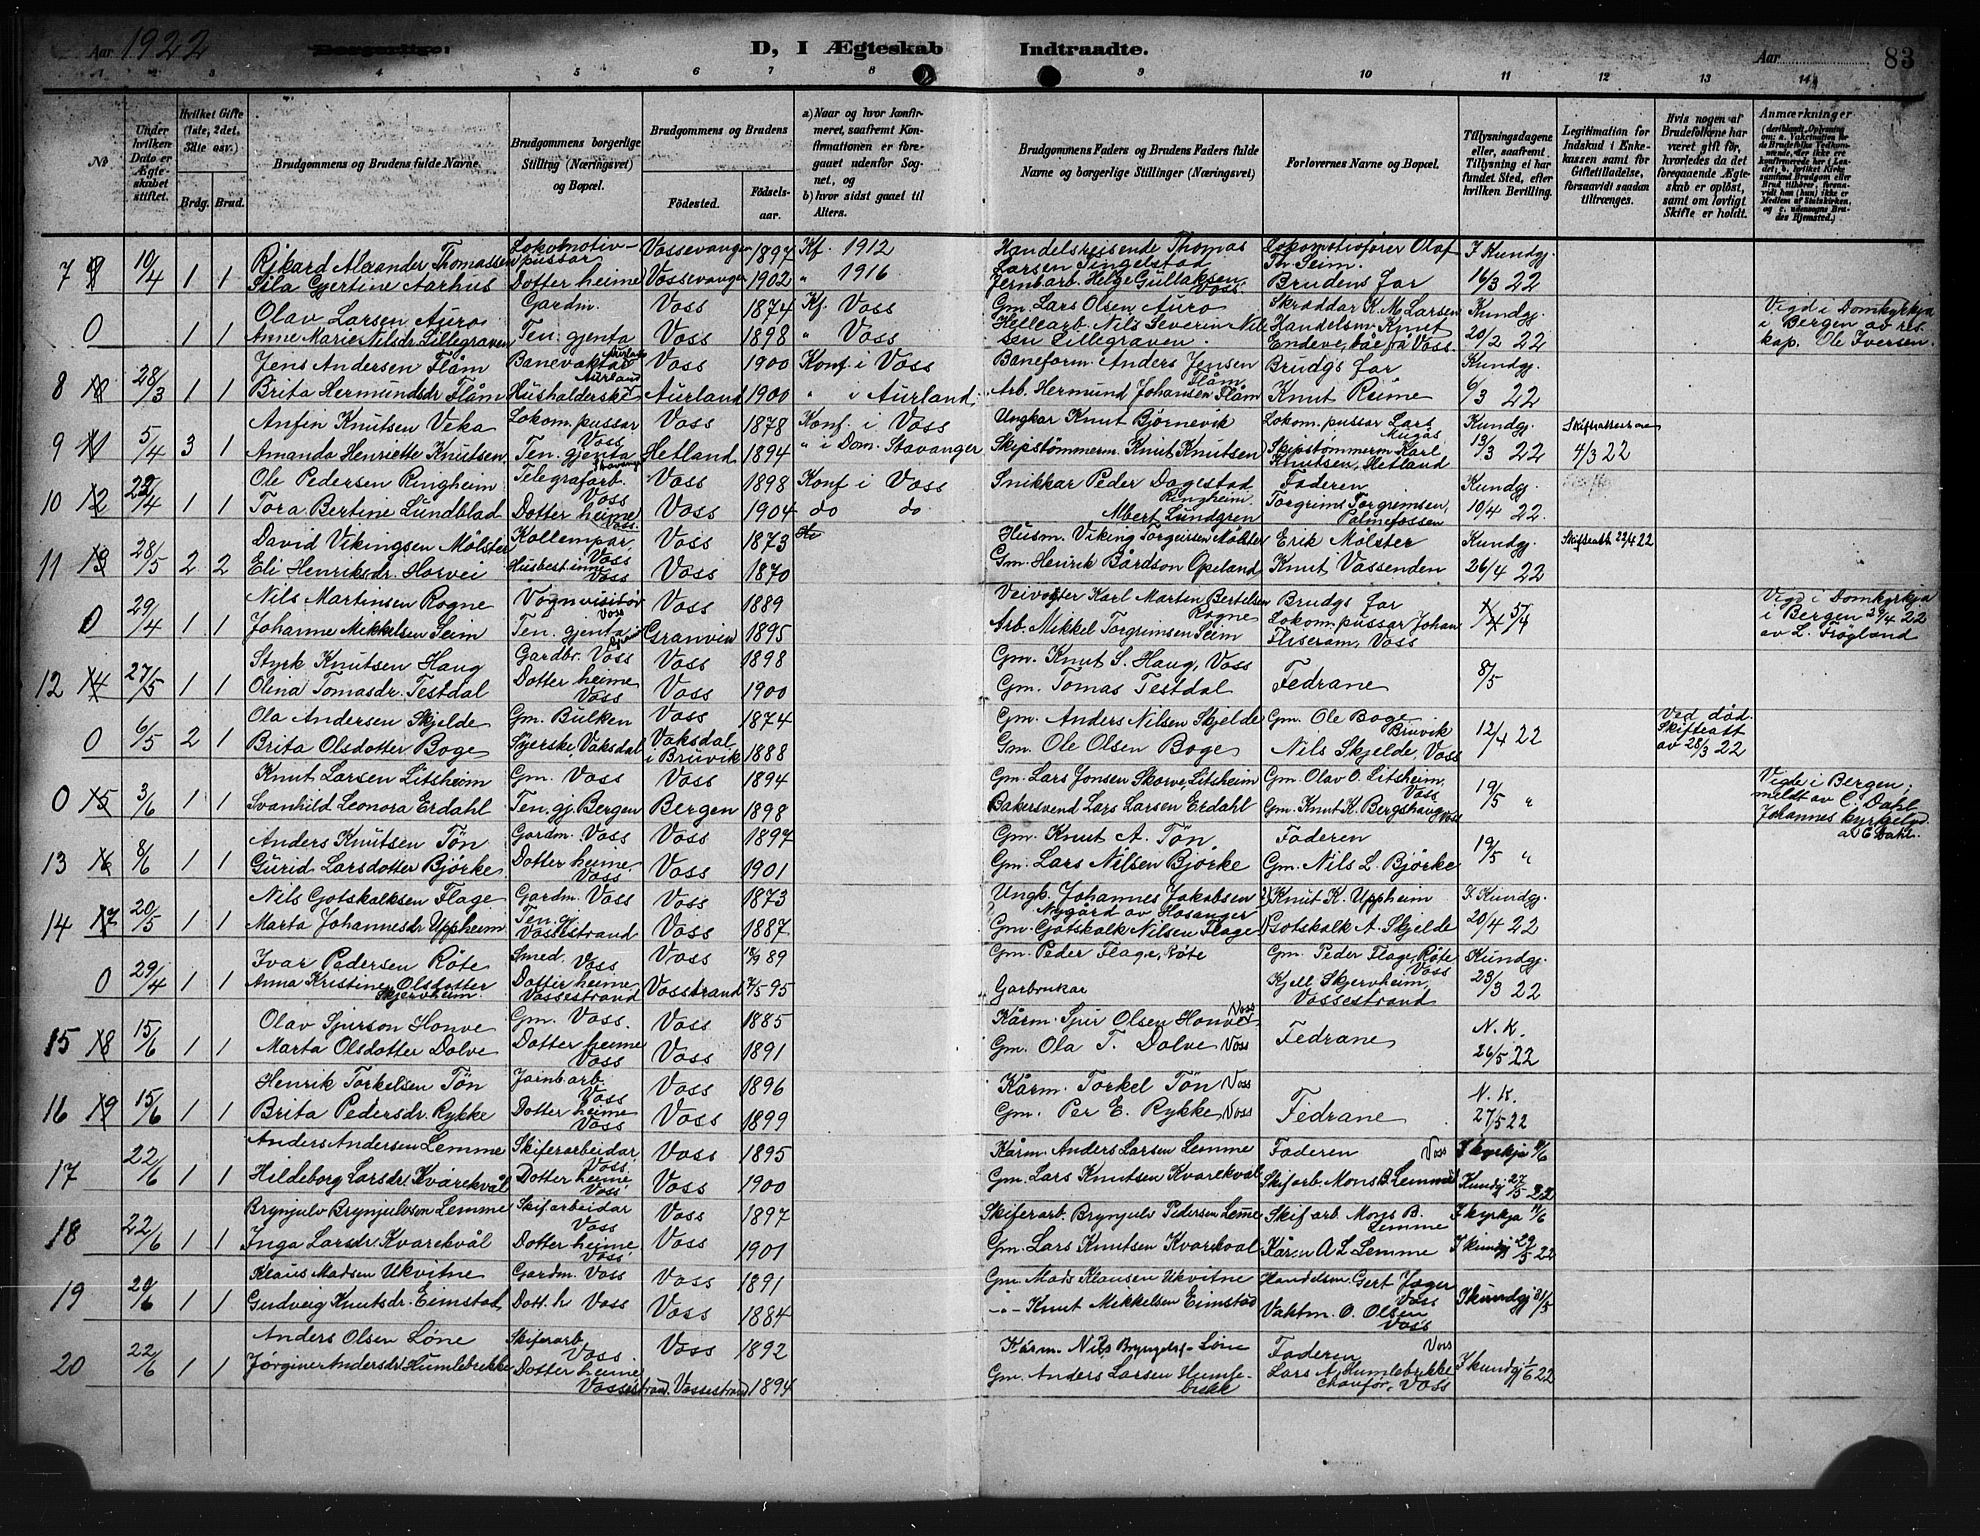 Aar 1922
Borgerlige.
D, I Ægteskab Indtraadte.
Aar 83
1 2 3 4 5 6 7 8 9 10 11 12 13 14
No
Under hvilken Dato er Ægteskabet stiftet.
Hvilket Gifte (1ste, 2det, 3die osv.)
Brdg. Brud.
Brudgommens og Brudens fulde Navne.
Brudgommens borgerlige Stilling (Næringsvei) og Bopæl.
Brudgommens og Brudens
Födested. Födselsaar.
a) Naar og hvor konfirmeret, saafremt Konfirmationen er foregaaet udenfor Sognet, og
b) hvor sidst gaaet til Alters.
Brudgommens Faders og Brudens Faders fulde Navne og borgerlige Stillinger (Næringsvei)
Forlovernes Navne og Bopæl.
Tillysningsdagene eller, saafremt Tillysning ei har fundet Sted, efter hvilken Bevilling.
Legitimation for Indskud i Enkekassen samt for Giftetilladelse, forsaavidt saadan tiltrænges.
Hvis nogen af Brudefolkene har været gift för, hvorledes da det foregaaende Ægteskab er oplöst, samt om lovligt Skifte er holdt.
Anmærkninger
7 10/4 1 1 Rikard Alexander Thomassen Lokomotivpussar Vossevangen 1897 Kf. 1912 Handelsreisende Thomas Larsen Tingelstad Lokomotivförer Olaf Th. Seim. I Kundgj.
Sila Gjertine Aarhus Dotter heime Vossevangen 1902 " 1916 Jernbarb. Helge Gullaksen Voss. Brudens far 16/3 22
0 1 1 Olav Larsen Auro Gardm. Voss 1874 Kf. Voss Gm. Lars Olsen Auro Skräddar K. M. Larsen Kundgj. Vigd i Domkyrkja
Anne Marie Nilsdr. Lillegraven Ten. gjenta Voss 1898 " Voss Hellearb. Nils Severin Nilsen Lillegraven. Handelsm. Knut Endeve, båe på Voss. 20/2 22 i Bergen av res. kap. Ole Iversen.
8 28/3 1 1 Jens Andersen Flåm Banevaktar Aurland Voss 1900 Konf. i Voss Baneform. Anders Jensen Flåm Brudgs far Kundgj.
Brita Hermundsdr. Flåm Husholderske Aurland 1900 " i Aurland. Arb. Hermund Johansen Flåm Knut Reime 6/3 22
9 11 5/4 3 1 Anfin Knutsen Veka Lokom. pussar Voss Voss 1878 Konf. i Voss Ungkar Knut Björnevik Lokom. pussar Lars Mugås Kundgj.
Amanda Henriette Knutsen Ten. gjenta Stavanger Hetland 1894 " i Dom. Stavanger Skipstömmerm. Knut Knutsen Skipstömmerm. Karl Knutsen, Hetland 13/3 22 4/3 22
10 12 22/4 1 1 Ole Pedersen Ringheim Telegrafarb. Voss Voss 1898 Konf. i Voss Snikkar Peder Dagestad Ringheim Faderen Kundgj.
Tora Bertine Lundblad Dotter heime Voss. Voss 1904 do do Albert Lundgren Torgrim Torgrimsen, Palmefossen 10/4 22.
11 13 28/5 2 2 David Vikingsen Mölster Voss Voss 1873 Husm. Viking Torgeirsen Mölster Erik Mölster Kundgj. Skifteatt 22/4 22
Eli Henriksdr. Horvei Husbestinne Voss Voss 1870 Gm. Henrik Bårdson Opeland Knut Vassenden 26/4 22
0 29/4 1 1 Nils Martinsen Rogne Vognvisitör Voss Voss 1889 Karl Marten Bertelsen Rogne Brudgs far Vigd i Domkyrkja
Johanne Mikkelsen Seim Ten. gjenta Granvin 1895 Arb. Mikkel Torgrimsen Seim Lokom. pussar Johan Fliseram, Voss 5/4 i Bergen 29/4 22 av L. Frögland
12 14 27/5 1 1 Styrk Knutsen Haug Gardbr. Voss Voss 1898 Gm. Knut S. Haug, Voss Fedrane 8/5
Olina Tomasdr. Testdal Dotter heime Voss Voss 1900 Gm. Tomas Testdal
0 6/5 2 1 Ola Andersen Skjelde Gm. Bulken Voss 1874 Gm. Anders Nilsen Skjelde Gm. Ole Boge Bruvik 12/4 22 Ved död. Skifteatt av 28/3 22
Brita Olsdotter Boge Syerske, Vaksdal Vaksdal i Bruvik 1888 Gm. Ole Olsen Boge Nils Skjelde, Voss
0 15 3/6 1 1 Knut Larsen Litsheim Gm. Voss Voss 1894 Gm. Lars Jonsen Skorve, Litsheim Gm. Olav O. Litsheim, Voss 19/5 " Vigde i Bergen,
Svanhild Leonora Erdahl Ten. gj. Bergen Bergen 1898 Bakersvend Lars Larsen Erdahl Gm. Knut K. Bergshaug Voss meldt av C. Dahl Johannes kyrkelyd av C. Dahl.
13 16 8/6 1 1 Anders Knutsen Tön Gardm. Voss Voss 1897 Gm. Knut A. Tön. Faderen 19/5 "
Gurid Larsdotter Björke. Dotter heime. Voss Voss 1901 Gm. Lars Nilsen Björke Gm. Nils L. Björke
14 17 20/5 1 1 Nils Gotskalksen Flage Gardm. Voss Voss 1873 Ungk. Johannes Jakobsen Nygård av Hosanger Knut K. Uppheim I. Kundgj.
Marta Johannesdr. Uppheim Ten. gj. Vossestrand Voss 1887 Gm. Gotskalk Nilsen Flage Gotskalk A. Skjelde 20/4 22
0 29/4 1 1 Ivar Pedersen Röte Smed. Voss Voss 89 Gm. Peder Flage, Röte Gm. Peder Flage, Röte Voss Kundgj.
Anna Kristine Olsdotter Skjervheim. Dotter heime, Vossestrand Vosstrand 95 Garbrukar Kjell Skjervheim, Vossestrand 23/3 22
15 18 15/6 1 1 Olav Sjurson Honve Gm. Voss. Voss 1885 Kårm. Sjur Olsen Honve Voss Fedrane N. K.
Marta Olsdotter Dolve Dotter heime Voss Voss 1891 Gm. Ola T. Dolve Voss 26/5 22
16 19 15/6 1 1 Henrik Torkelsen Tön Jainbarb. Voss Voss 1896 Kårm. Torkel Tön Voss Fedrane N. K.
Brita Pedersdr. Rykke Dotter heime Voss Voss 1899 Gm. Per E. Rykke Voss 27/5 22
17 22/6 1 1 Anders Andersen Lemme Skiferarbeidar Voss. Voss 1895 Kårm. Anders Larsen Lemme Faderen Voss I kyrkja 11/6
Hildeborg Larsdr. Kvarekvål Dotter heime Voss Voss 1900 Gm. Lars Knutsen Kvarekval Skifarb. Mons B. Lemme I Kundgj 27/5 22
18 22/6 1 1 Brynjulv Brynjulvson Lemme Skifarbeidar Voss Voss 1897 Skiferarb. Brynjulv Pedersen Lemme Skifarb. Mons B. Lemme I kyrkja 11/6
Inga Larsdr. Kvarekvål Dotter heime Voss Voss 1901 Gm. Lars Knutsen Kvarekval Kårm A L Lemme I kundgj 29/5 22
19 20/6 1 1 Klaus Madsen Ukvitne Gardm. Voss Voss 1891 Gm. Mads Klausen Ukvitne Handelsm. Gert Jager Voss I kundgj 31/5
Gudveig Knutsdr. Eimstad Dott. h Voss Voss 1884 -"- Knut Mikkelsen Eimstad Vaktm. O. Olsen Voss
20 22/6 1 1 Anders Olsen Löne Skiferarb. Voss Voss 1892 Kårm. Nils Löne Faderen Voss
Jörgine Andersdr. Humlebrekke Dotter heime Vossestrand. Vossestrand 1894 Gm. Anders Larsen Humlebrekk Lars A. Humlebrekke Chauför, Voss I kundgj 1/6 22